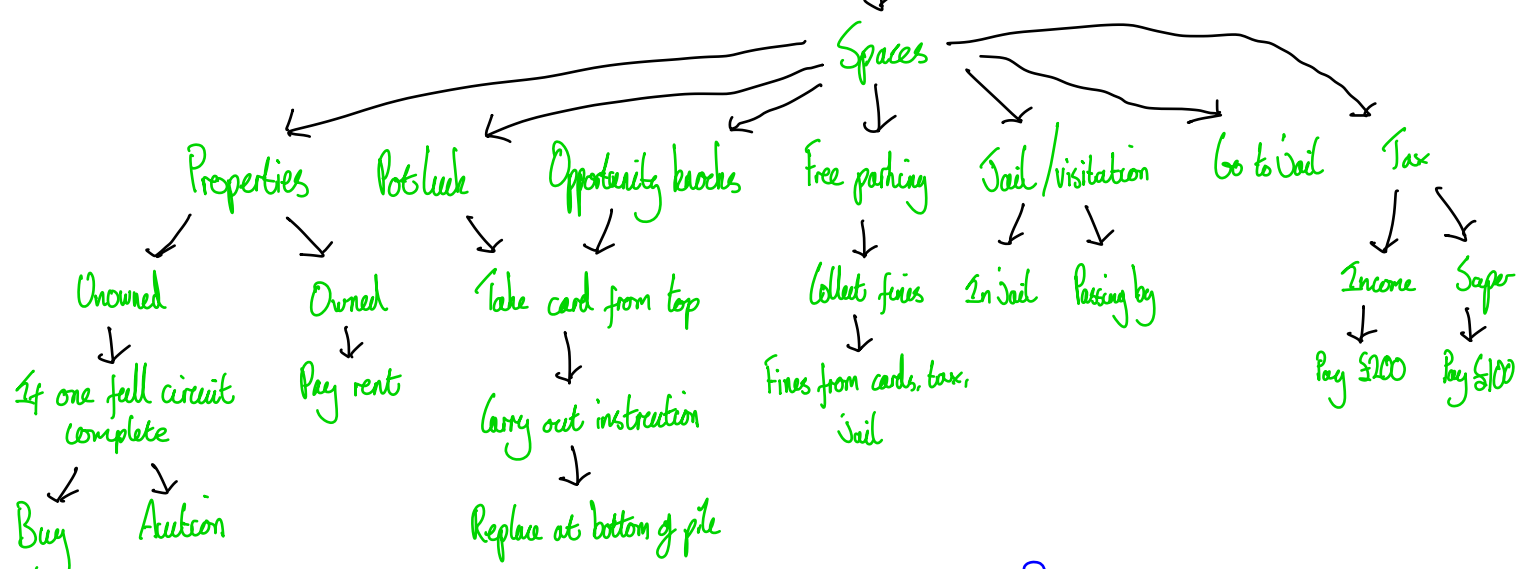 Spaces
Properties
Potluck
Opportunity knocks
Free parking
Jail / visitation
Go to Jail
Tax
Unowned
Owned
Take card from top
Collect fines
In jail
Passing by
Income
Super
If one full circuit
complete
Pay rent
Carry out instruction
Fines from cards, tax,
jail
Pay £200
Pay £100
Buy
Auction
Replace at bottom of pile